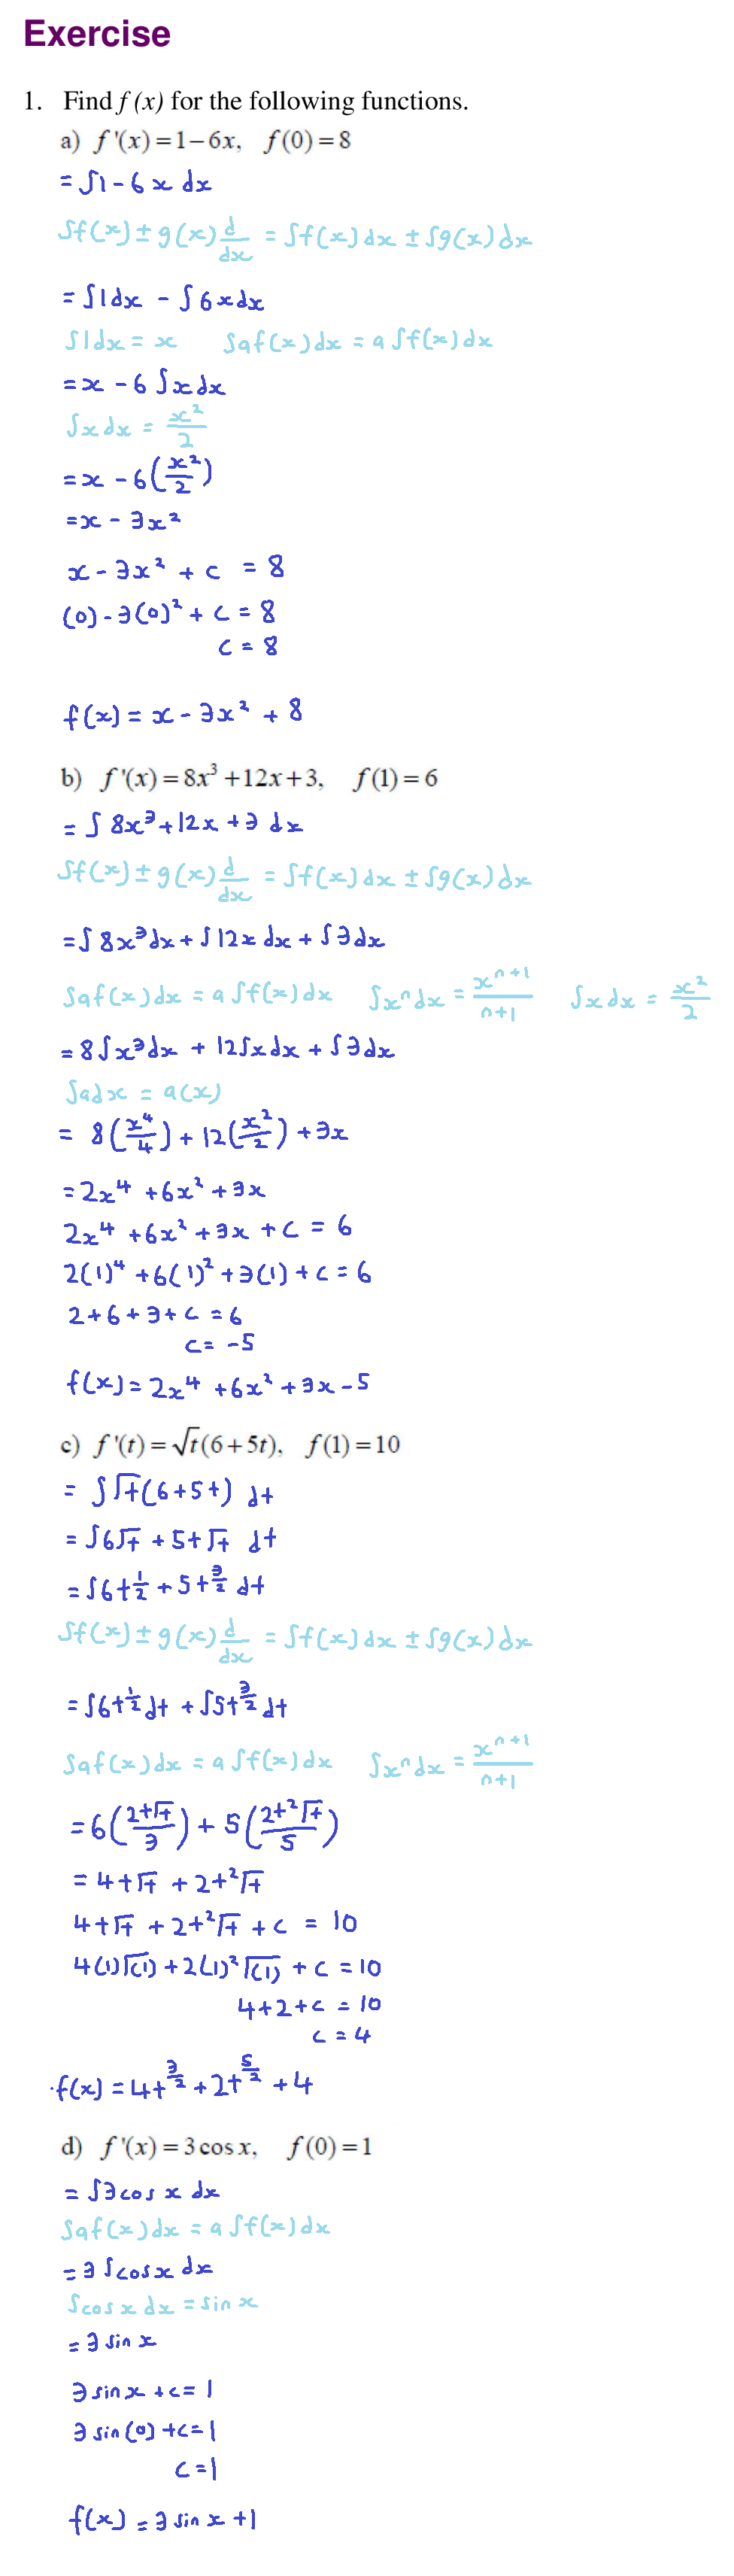 Exercise
1. Find f (x) for the following functions.
a) f '(x) = 1 – 6x, f(0) = 8
= ∫1 - 6x dx
∫f(x) ± g(x) d/dx = ∫f(x) dx ± ∫g(x) dx
= ∫1dx - ∫6xdx
∫1dx = x ∫af(x)dx = a∫f(x)dx
= x - 6∫xdx
∫xdx = x²/2
= x - 6(x²/2)
= x - 3x²
x - 3x² + c = 8
(0) - 3(0)² + c = 8
c = 8
f(x) = x - 3x² + 8
b) f '(x) = 8x³ + 12x + 3, f(1) = 6
= ∫8x³ + 12x + 3 dx
∫f(x) ± g(x) d/dx = ∫f(x) dx ± ∫g(x) dx
= ∫8x³dx + ∫12x dx + ∫3dx
∫af(x)dx = a∫f(x)dx ∫xⁿdx = xⁿ⁺¹/n+1 ∫xdx = x²/2
= 8∫x³dx + 12∫xdx + ∫3dx
∫adx = a(x)
= 8(x⁴/4) + 12(x²/2) + 3x
= 2x⁴ + 6x² + 3x
2x⁴ + 6x² + 3x + c = 6
2(1)⁴ + 6(1)² + 3(1) + c = 6
2 + 6 + 3 + c = 6
c = -5
f(x) = 2x⁴ + 6x² + 3x - 5
c) f '(t) = √t(6 + 5t), f(1) = 10
= ∫√t(6 + 5t) dt
= ∫6√t + 5t√t dt
= ∫6t^1/2 + 5t^3/2 dt
∫f(x) ± g(x) d/dx = ∫f(x) dx ± ∫g(x) dx
= ∫6t^1/2 dt + ∫5t^3/2 dt
∫af(x)dx = a∫f(x)dx ∫xⁿdx = xⁿ⁺¹/n+1
= 6(2t√t/3) + 5(2t²√t/5)
= 4t√t + 2t²√t
4t√t + 2t²√t + c = 10
4(1)√(1) + 2(1)²√(1) + c = 10
4 + 2 + c = 10
c = 4
f(x) = 4t^3/2 + 2t^5/2 + 4
d) f '(x) = 3 cos x, f(0) = 1
= ∫3cos x dx
∫af(x)dx = a∫f(x)dx
= 3∫cosx dx
∫cos x dx = sin x
= 3 sin x
3 sin x + c = 1
3 sin(0) + c = 1
c = 1
f(x) = 3 sin x + 1